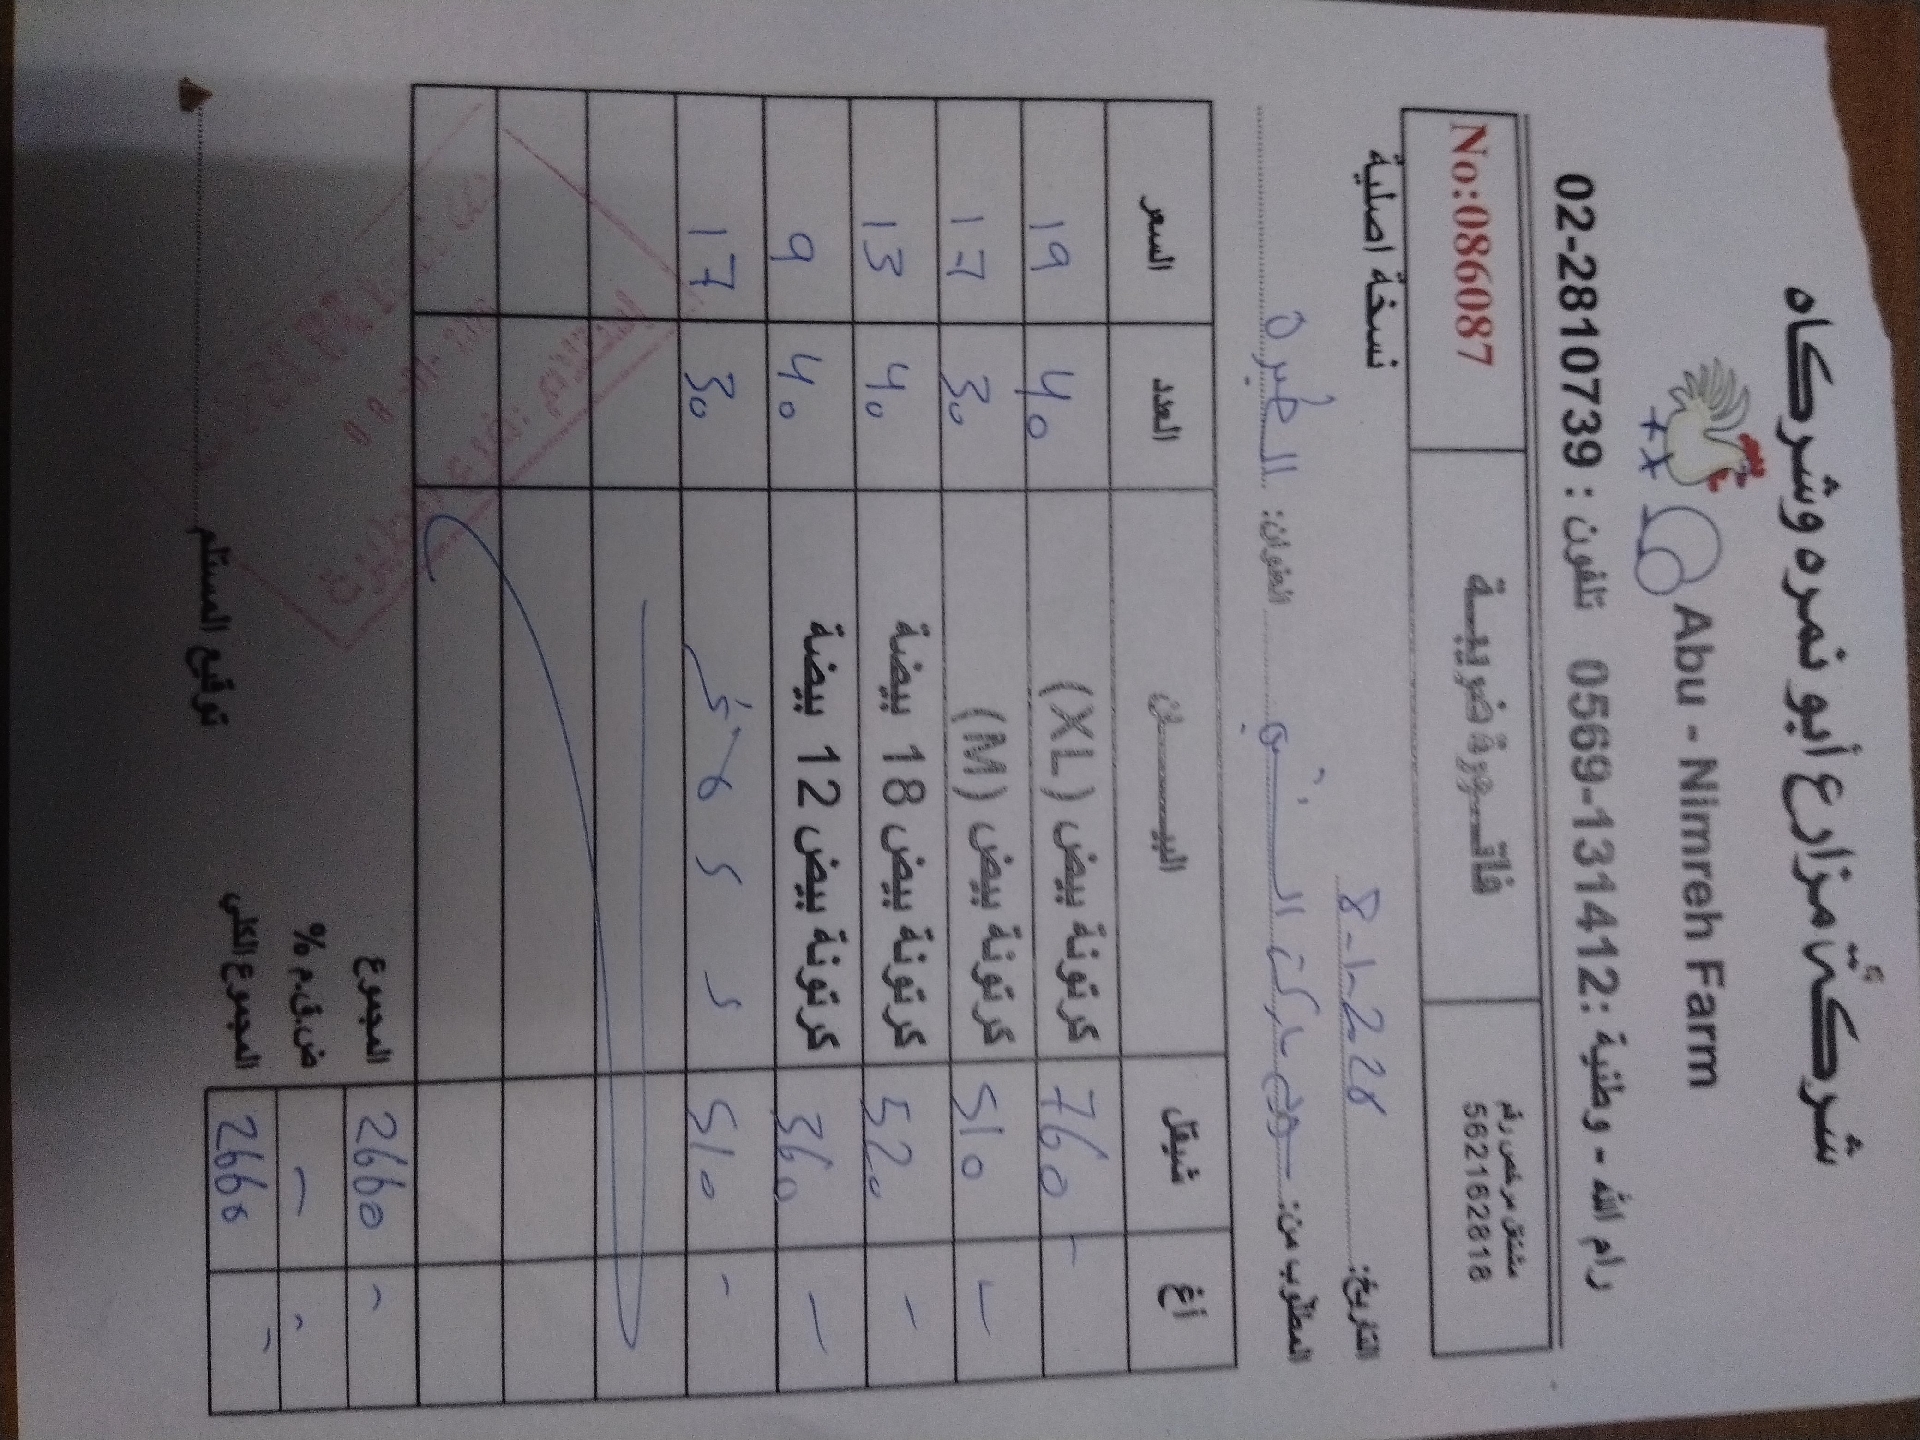 شركة مزارع أبو نمره وشركاه
Abu - Nimreh Farm
رام الله - وطنية : 0569-131412 تلفون : 02-2810739
مشتغل مرخص رقم
562162818
فاتورة ضريبية
No:086087
نسخة اصلية
التاريخ: 8-1-2028
المطلوب من: سوبر ماركت العنوان: الطيرة
أغ شيقل البيان العدد السعر
- 760 كرتونة بيض (XL) 40 19
- 510 كرتونة بيض (M) 30 17
- 520 كرتونة بيض 18 بيضة 40 13
- 360 كرتونة بيض 12 بيضة 40 9
- 510 30 17
المجموع 2660 -
ض.ق.م % - -
المجموع الكلي 2660 -
توقيع المستلم